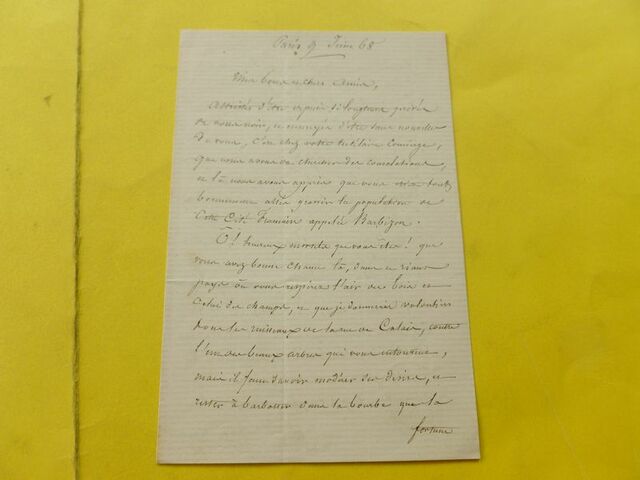 Paris 9 Juin 68
Mes bons et chers Amis,
d'être depuis si longtems privés
de vous voir, et d'être sans nouvelles
de vous, c'est chez votre
que nous avons été chercher des consolations,
et là nous avons appris que vous
grossir la population de
cette Cité appelée Barbizon.
Ô! heureux mortels que vous êtes! que
vous avez bonne chance là, dans ce riant
pays où vous respirez l'air des bois et
celui des champs, et que je donnerais volontiers
tous les ruisseaux de la rue de Calais, contre
l'un des beaux arbres qui vous entourent,
mais il faut savoir modérer ses désirs, et
rester à barboter dans la bourbe que la
fortune